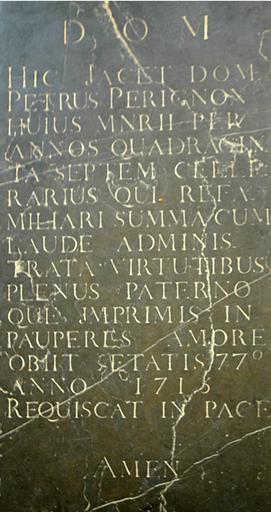 D O M
HIC JACET DOM
PETRUS PERIGNON
HUIUS MNRII PER
ANNOS QUADRAGIN
TA SEPTEM CELLE
RARIUS QUI REFA
MILIARI SUMMA CUM
LAUDE ADMINIS
TRATA VIRTUTIBUS
PLENUS PATERNO
QUE IMPRIMIS IN
PAUPERES AMORE
OBIIT ÆTATIS 77º
ANNO 1715
REQUISCAT IN PACE
AMEN